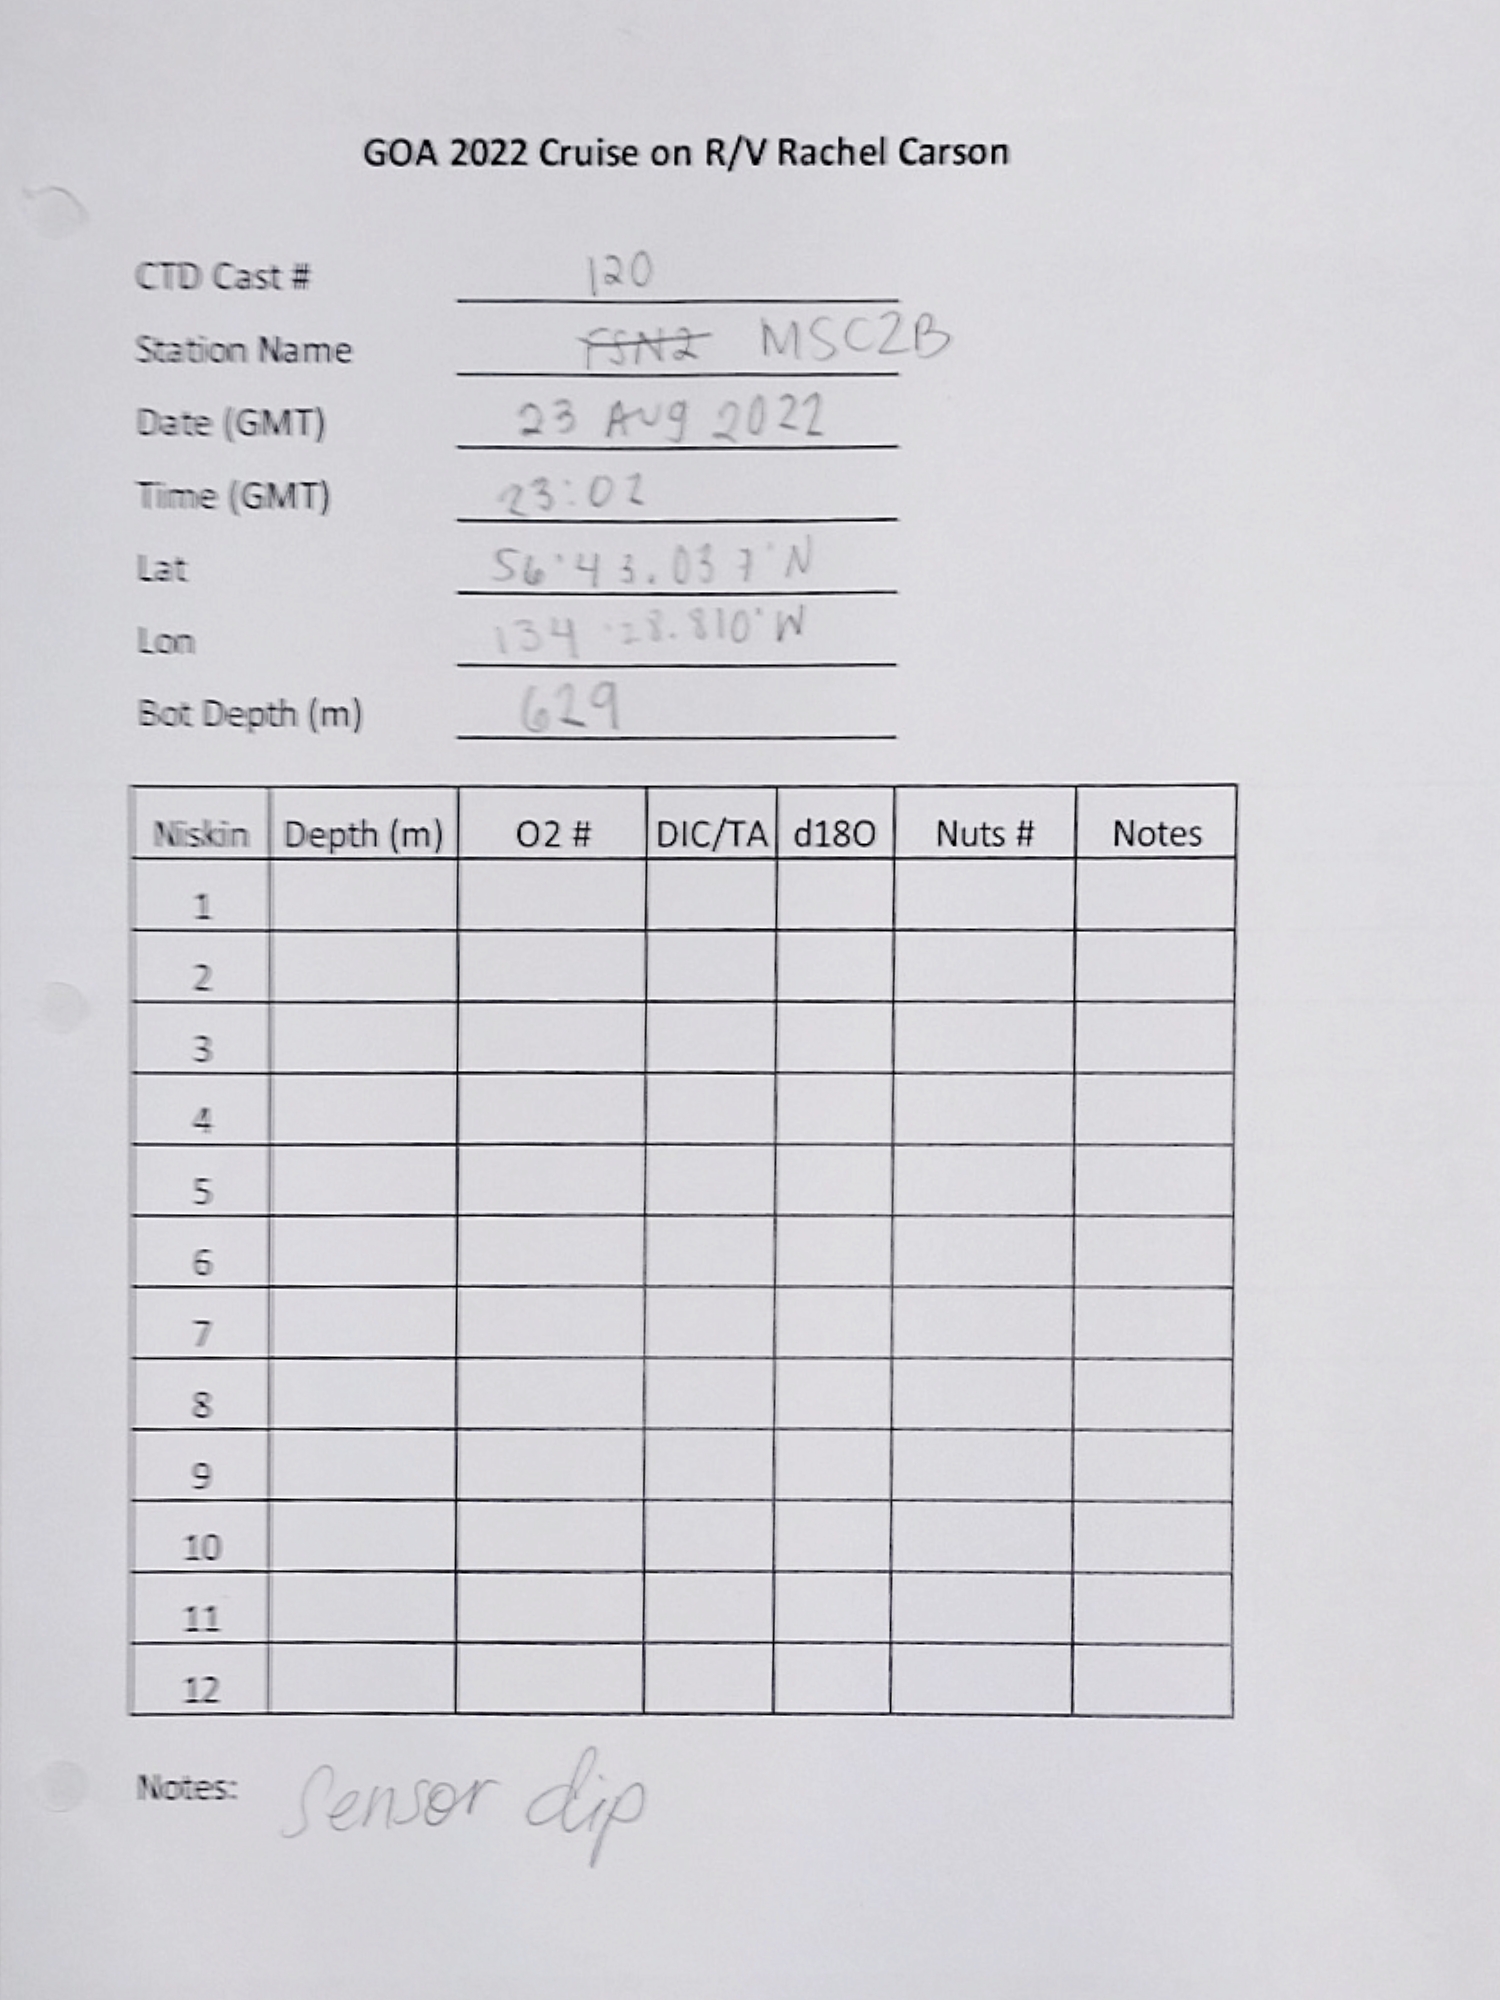 GOA 2022 Cruise on R/V Rachel Carson
CTD Cast # 120
Station Name FSN2 MSC2B
Date (GMT) 23 Aug 2022
Time (GMT) 23:02
Lat 56°43.037'N
Lon 134°28.810'W
Bot Depth (m) 629
Niskin Depth (m) O2 # DIC/TA d18O Nuts # Notes
1
2
3
4
5
6
7
8
9
10
11
12
Notes: Sensor dip